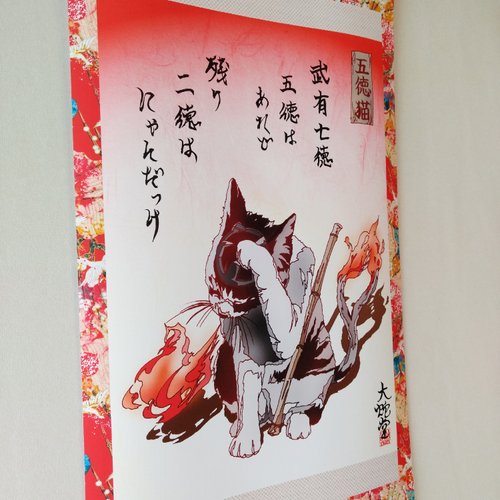 五徳猫
武有七徳
五徳は
あれど
残り
二徳は
にゃんだっけ